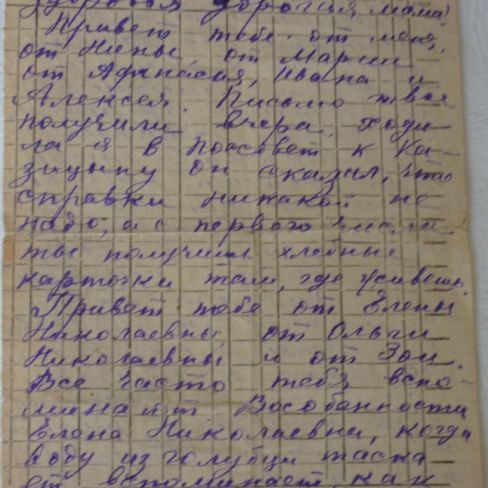 Здоровая дорогая мама!
Привет тебе от меня,
от Нины, от Марии
от Афанасия, Ивана и
Алексея. Письмо твоё
получили вчера, ходи-
ла я в Поссовет к Ка-
зицыну он сказал, что
справки никакой не
надо, а с первого числа
ты получишь хлебные
карточки там, где живешь.
Привет тебе от Елены
Николаевны, от Ольги
Николаевны и от Зои.
Все часто тебя вспо-
минают Вособенности
Елена Николаевна, когда
воду из голубци таска-
ет вспоминает как